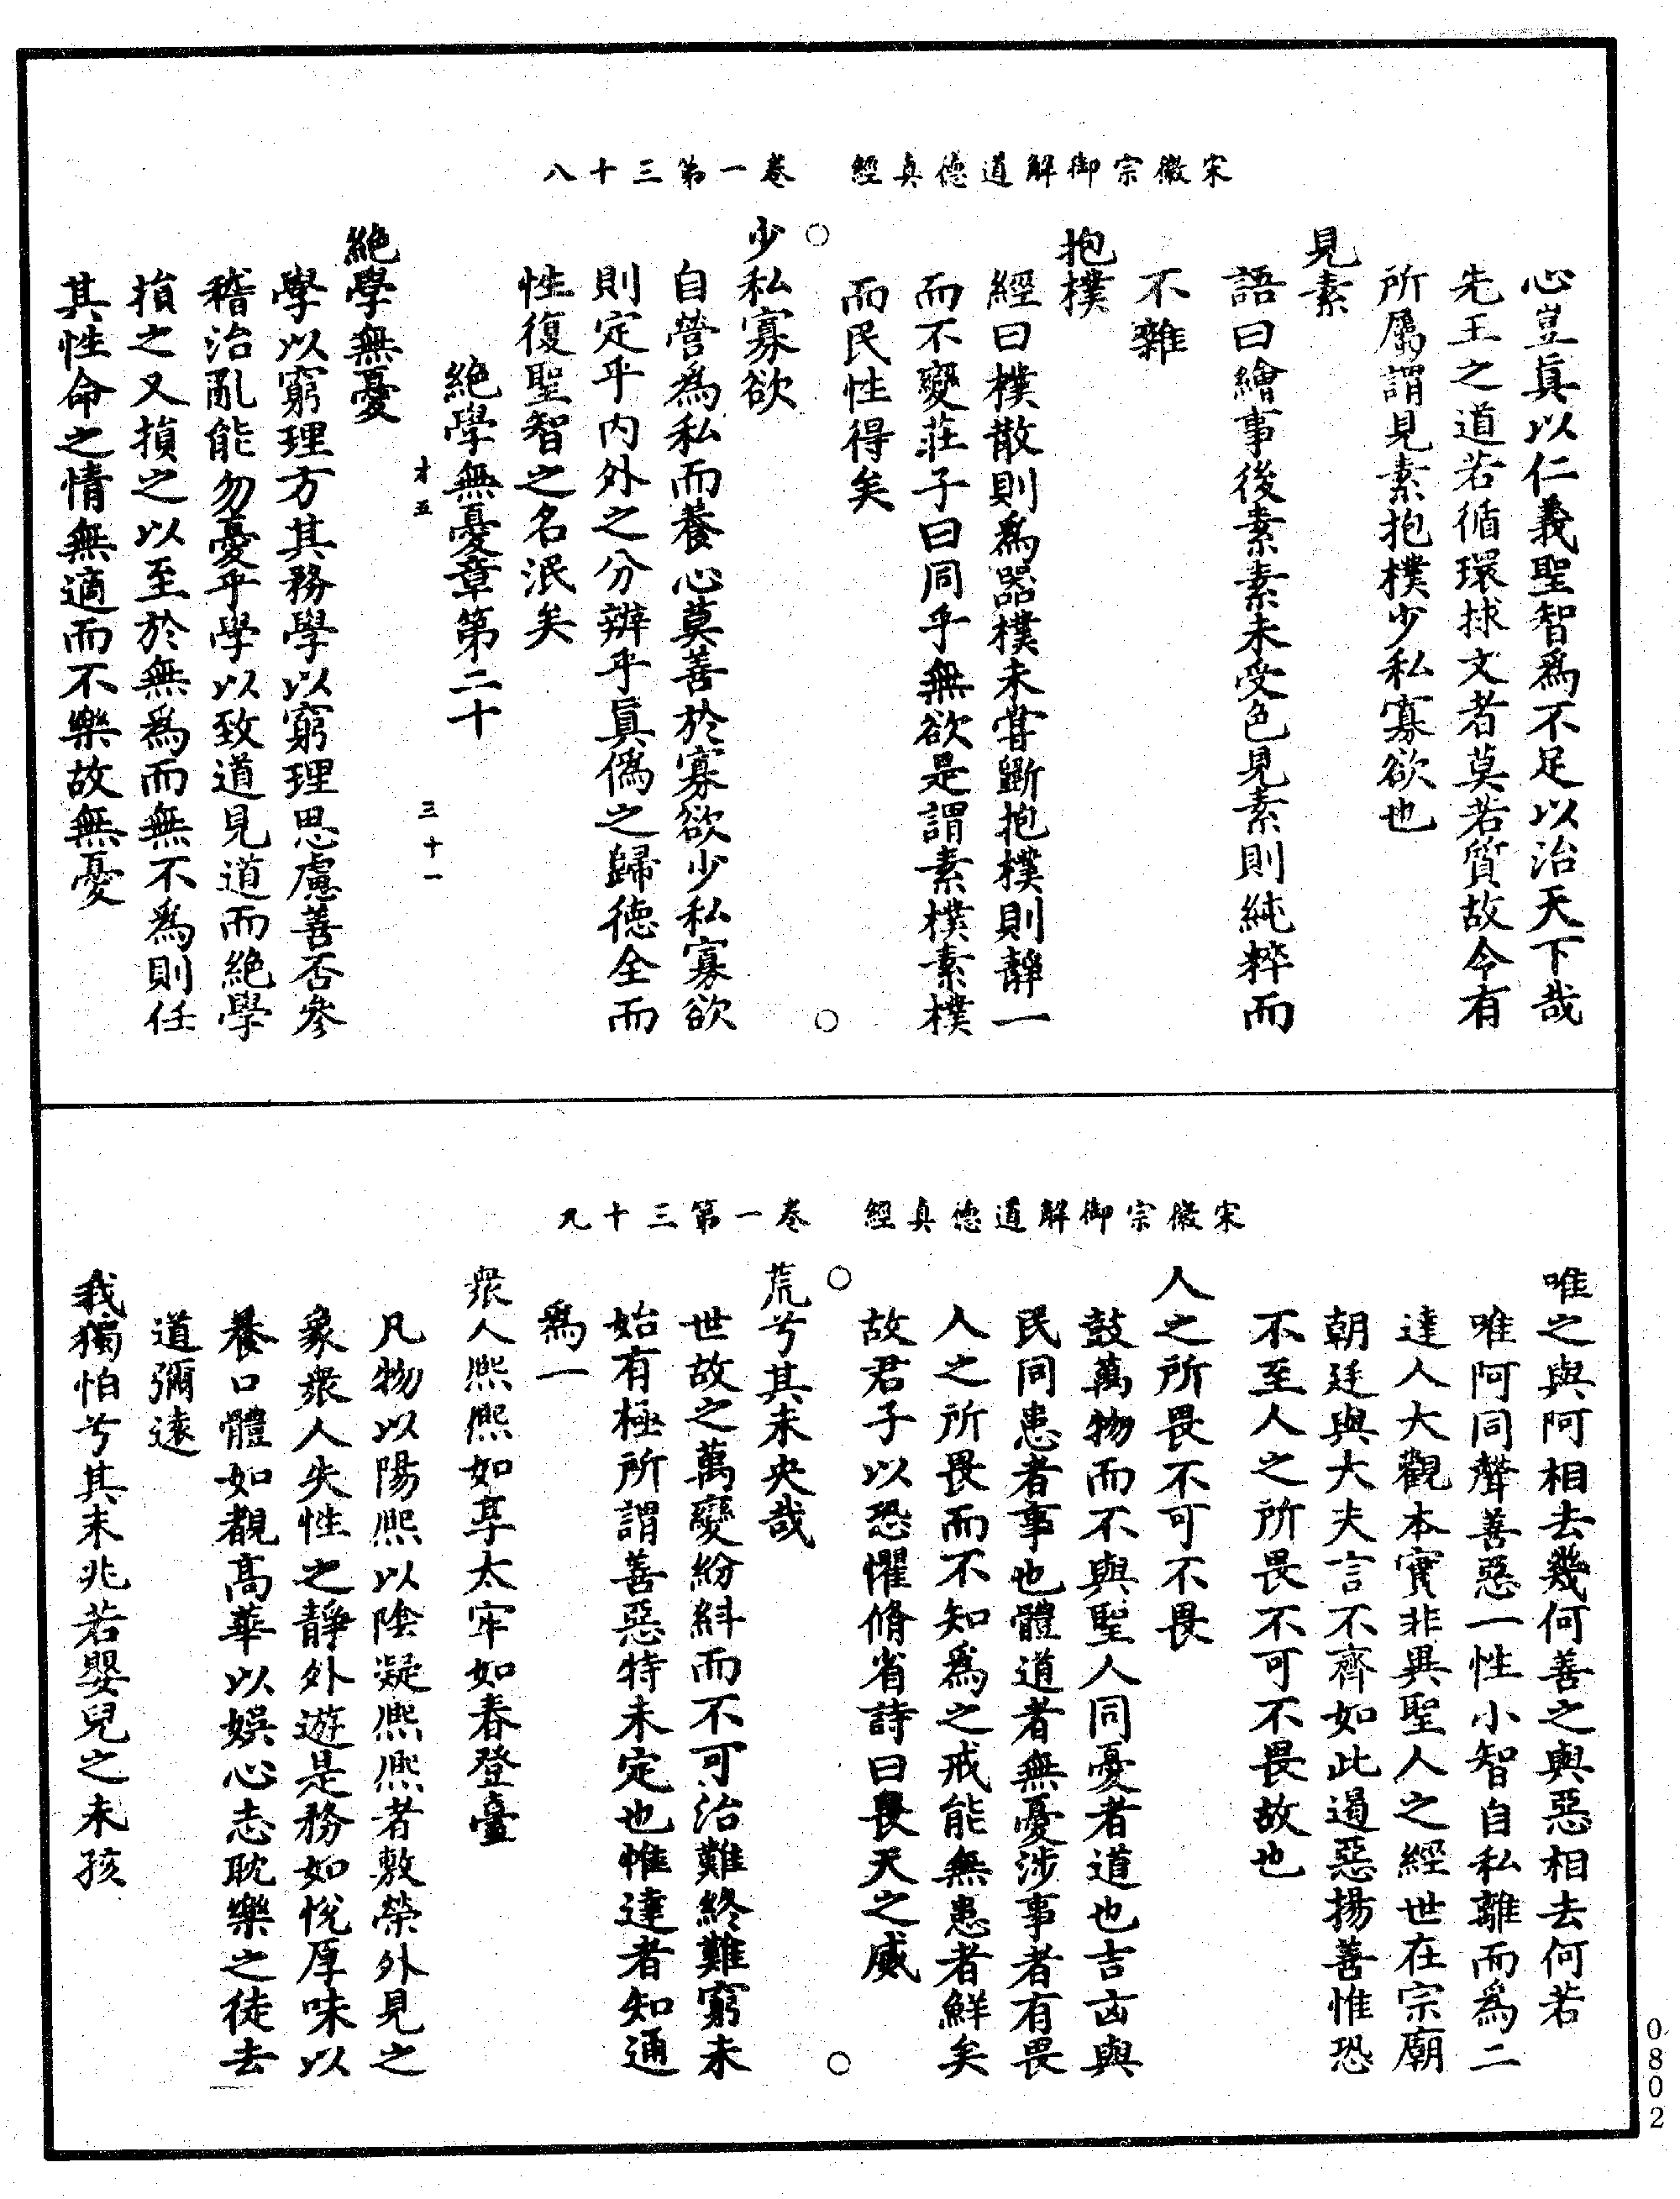 宋徽宗御解道德真經　卷一第三十八
心豈真以仁義聖智為不足以治天下哉
先王之道若循環捄文者莫若質故令有
所屬謂見素抱樸少私寡欲也
見素
語曰繪事後素素未受色見素則純粹而
不雜
抱樸
經曰樸散則為器樸未甞斲抱樸則靜一
而不變莊子曰同乎無欲是謂素樸素樸
而民性得矣
○　○
少私寡欲
自營為私而養心莫善於寡欲少私寡欲
則定乎內外之分辨乎真偽之歸德全而
性復聖智之名泯矣
絕學無憂章第二十
才五　三十一
絕學無憂
學以窮理方其務學以窮理思慮善否參
稽治亂能勿憂乎學以致道見道而絕學
損之又損之以至於無為而無不為則任
其性命之情無適而不樂故無憂
宋徽宗御解道德真經　卷一第三十九
唯之與阿相去幾何善之與惡相去何若
唯阿同聲善惡一性小智自私離而為二
達人大觀本實非異聖人之經世在宗廟
朝廷與大夫言不齊如此遏惡揚善惟恐
不至人之所畏不可不畏故也
人之所畏不可不畏
鼓萬物而不與聖人同憂者道也吉凶與
民同患者事也體道者無憂涉事者有畏
人之所畏而不知為之戒能無患者鮮矣
故君子以恐懼脩省詩曰畏天之威
○　○
荒兮其未央哉
世故之萬變紛糾而不可治難終難窮未
始有極所謂善惡特未定也惟達者知通
為一
衆人熙熙如享太牢如春登臺
凡物以陽熙以陰凝熙熙者敷榮外見之
象衆人失性之靜外遊是務如悅厚味以
養口體如覩高華以娛心志耽樂之徒去
道彌遠
我獨怕兮其未兆若嬰兒之未孩
0802